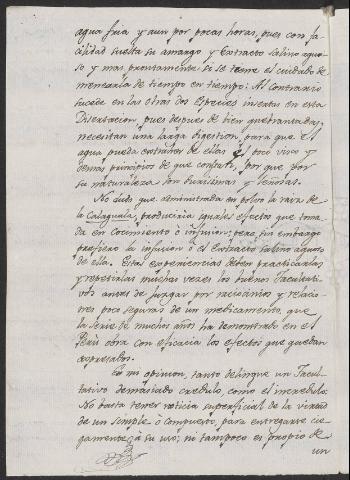 agua fria y aun por pocas horas, pues con fa-
cilidad suelta su amargo y Extracto salino aquo-
so, y mas prontamente si se tiene el cuidado de
menearla de tiempo en tiempo: Al Contrario
sucede en las otras dos Especies insertas en esta
Disertacion, pues despues de bien quebrantadas,
necesitan una larga digestion, para que el
agua pueda extraher de ellas el poco vivo y
demas principios de que constan, por que por
su naturaleza son durisimas y leñosas.
No dudo que administrada en polvo la raiz de
la Calaguala, produciria iguales efectos que toma-
da en cocimiento ò infusion; pero sin embargo
prefiero la infusion ò el extracto salino aquoso
de ella. Estas experiencias deben practicarlas
y repetirlas muchas vezes los buenos Facultati-
vos antes de juzgar por noticias y relacio-
nes poco seguras de un medicamento, que
la serie de muchos años ha demostrado en el
Perù obra con eficacia los efectos que quedan
expresados.
En mi opinion, tanto delinque un Facul-
tativo demasiado credulo, como el incredulo:
No basta tener noticia superficial de la virtud
de un simple ò compuesto, para entregarse cie-
gamente à su uso; ni tampoco es propio de
un